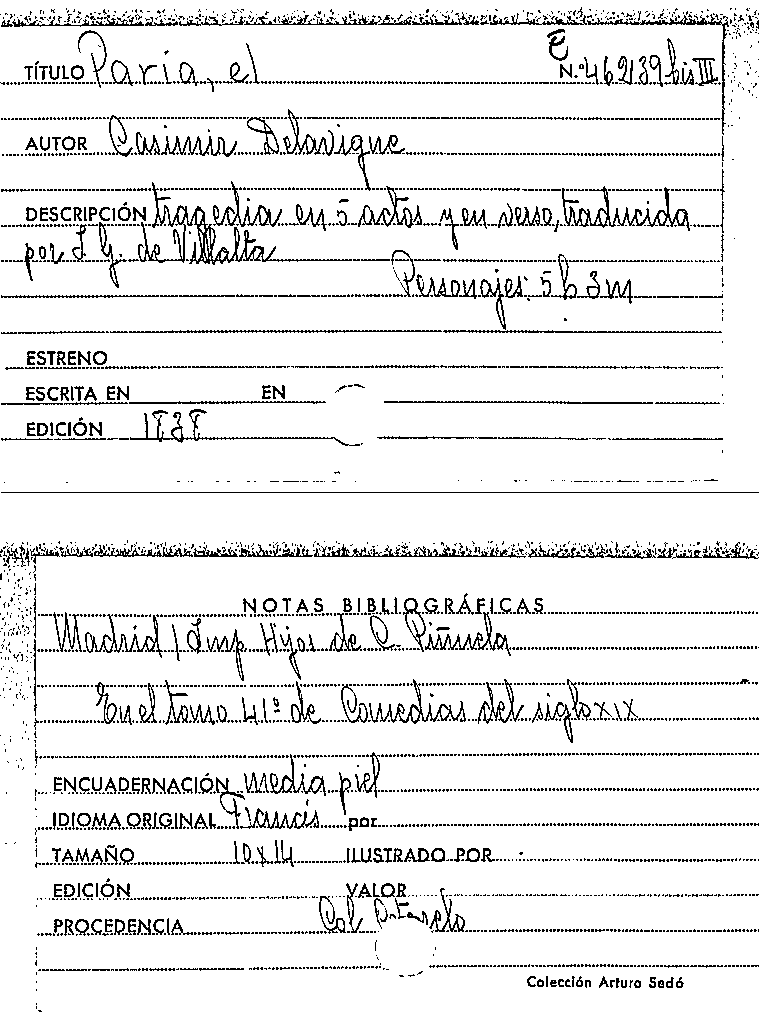 C
TÍTULO Paria, el N.º 46239 bis III
AUTOR Casimir Delavigne
DESCRIPCIÓN tragedia en 5 actos y en verso, traducida
por J G. de Villalta
Personajes: 5 h 3 m
ESTRENO
ESCRITA EN EN
EDICIÓN 1838
NOTAS BIBLIOGRÁFICAS
Madrid / Imp Hijos de C. Piñuela
En el tomo 41º de Comedias del siglo XIX
ENCUADERNACIÓN media piel
IDIOMA ORIGINAL Francés por
TAMAÑO 10x14 ILUSTRADO POR
EDICIÓN VALOR
PROCEDENCIA Col Cotarelo
Colección Arturo Sedó